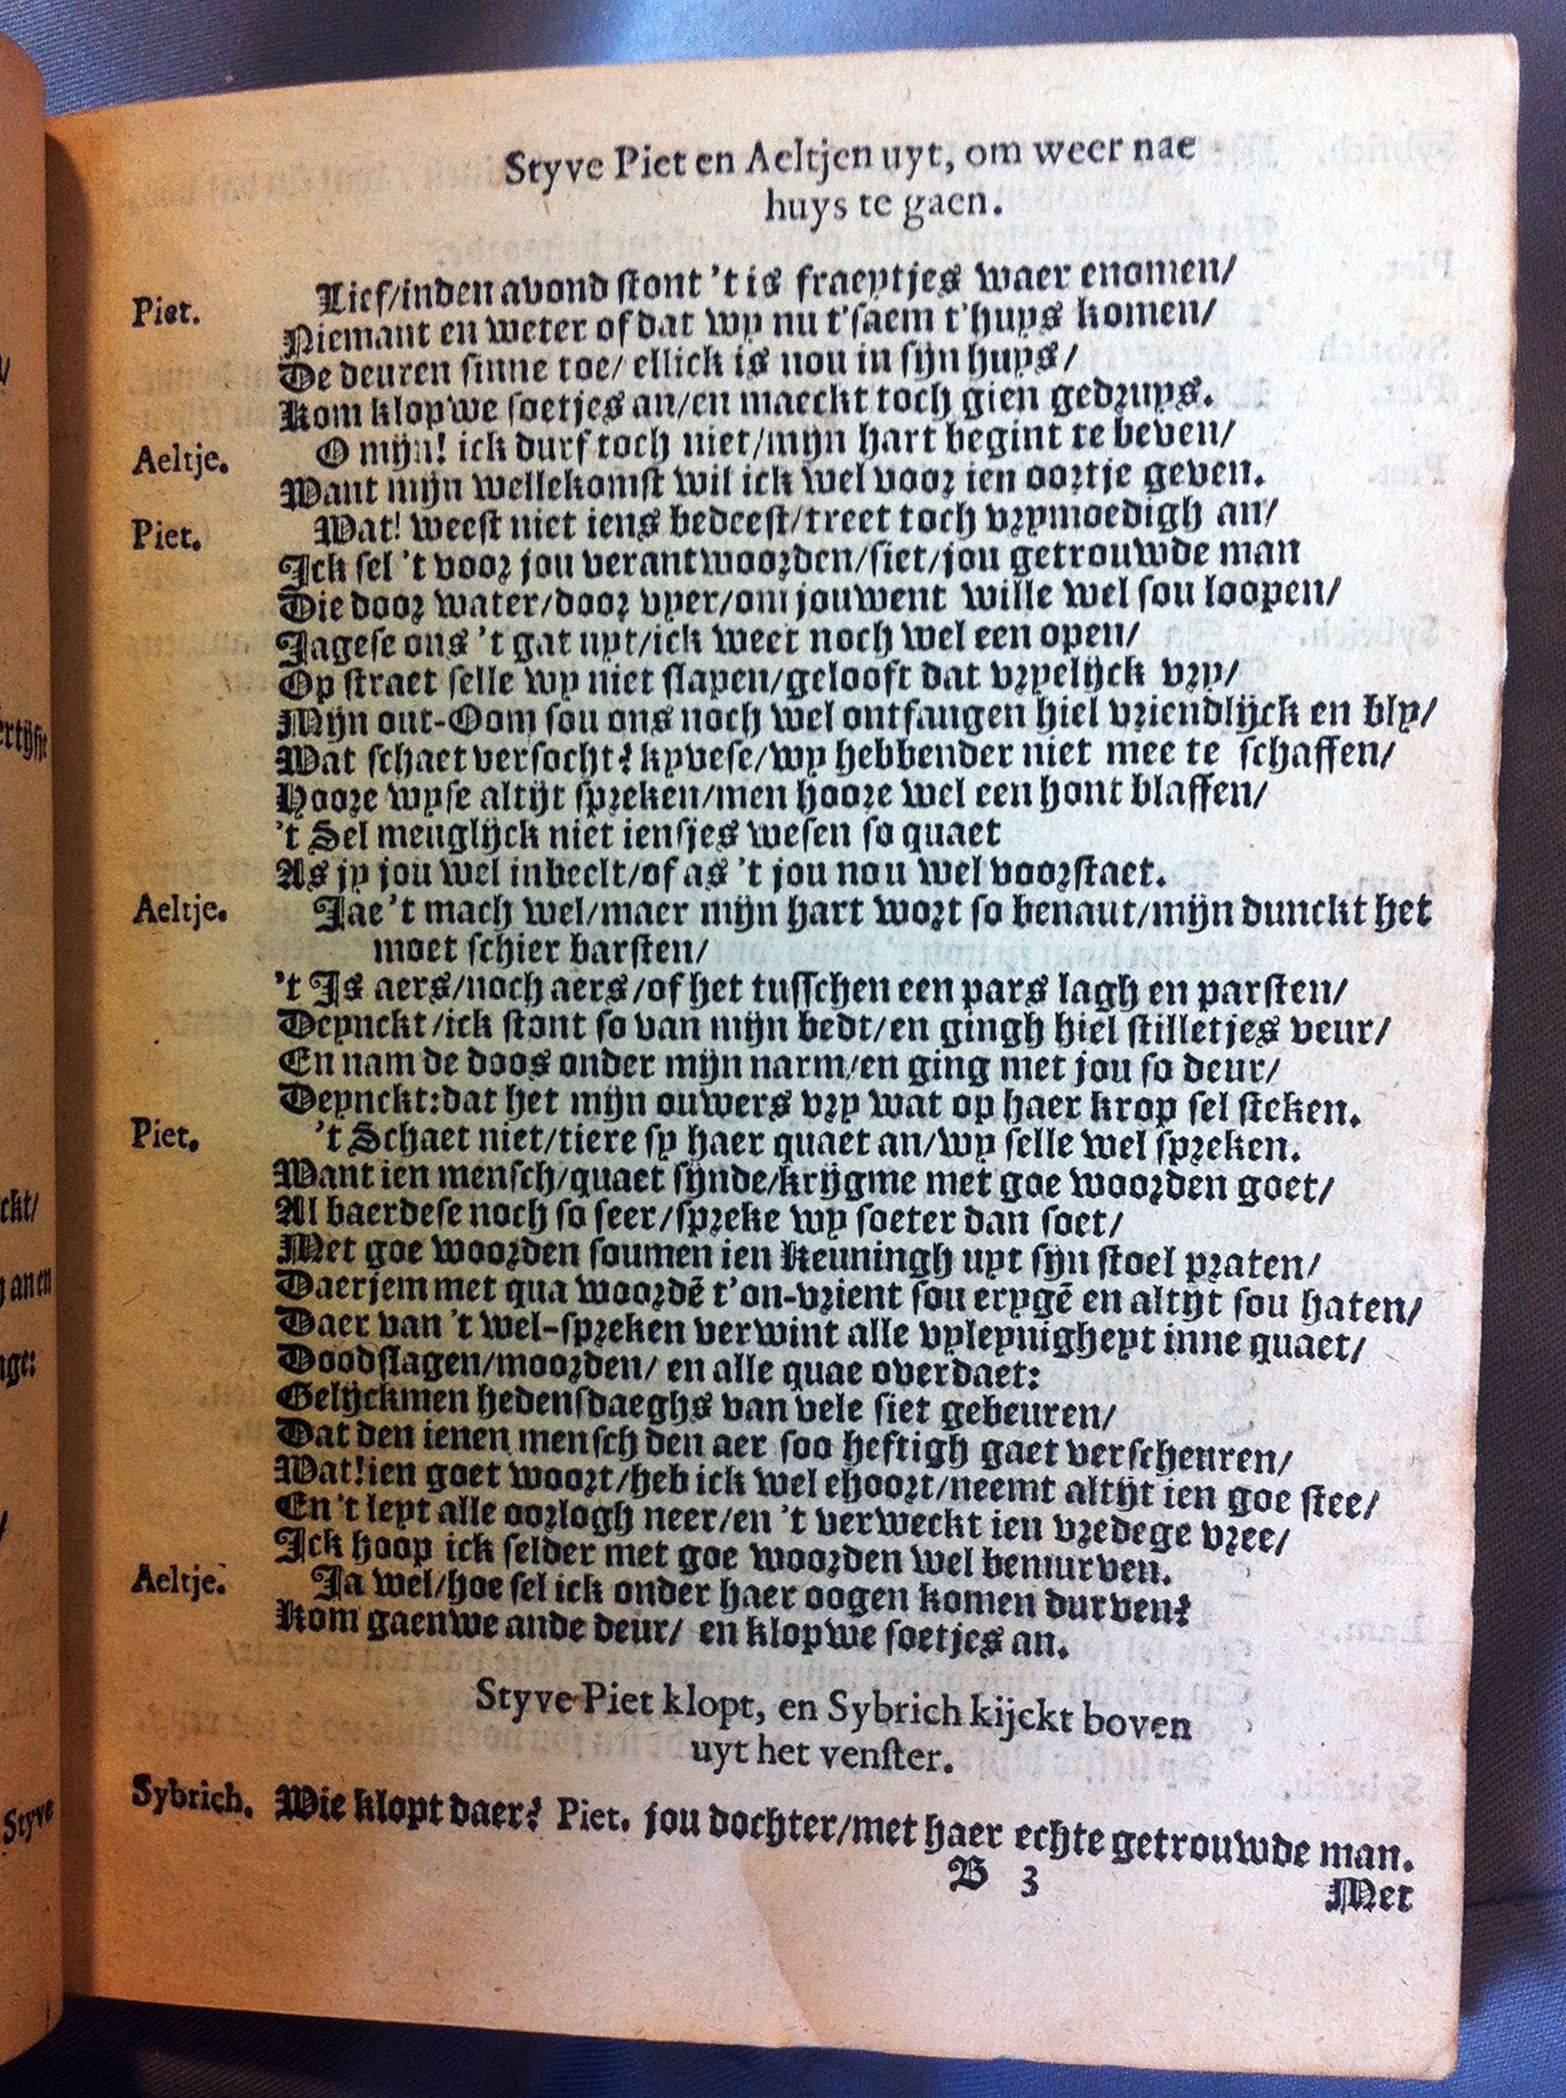 Styve Piet en Aeltjen uyt, om weer nae
huys te gaen.
Piet. Lief/inden avond stont 't is fraeytjes waer enomen/
Niemant en weter of dat wy nu t'saem t'huys komen/
De deuren sinne toe/ ellick is nou in sijn huys/
Kom klop'we soetjes an/en maeckt toch gien gedruys.
Aeltje. O mijn! ick durf toch niet/mijn hart begint te beven/
Want mijn wellekomst wil ick wel voor ien oortje geven.
Piet. Wat! weest niet iens bedeest/treet toch vrymoedigh an/
Ick sel 't voor jou verantwoorden/siet/jou getrouwde man
Die door water/door vyer/om jouwent wille wel sou loopen/
Jagese ons 't gat uyt/ick weet noch wel een open/
Op straet selle wy niet slapen/gelooft dat vryelijck vry/
Mijn out-Oom sou ons noch wel ontfangen hiel vriendlijck en bly/
Wat schaet versocht? kyvese/wy hebbender niet mee te schaffen/
Hoore wyse altijt spreken/men hoore wel een hont blaffen/
't Sel meuglijck niet iensjes wesen so quaet
As jy jou wel inbeelt/of as 't jou nou wel voorstaet.
Aeltje. Jae 't mach wel/maer mijn hart wort so benaut/mijn dunckt het
moet schier barsten/
't Is aers/noch aers/of het tusschen een pars lagh en parsten/
Deynckt/ick stont so van mijn bedt/en gingh hiel stilletjes veur/
En nam de doos onder mijn narm/en ging met jou so deur/
Deynckt:dat het mijn ouwers vry wat op haer krop sel steken.
Piet. 't Schaet niet/tiere sy haer quaet an/wy selle wel spreken.
Want ien mensch/quaet sijnde/krijgme met goe woorden goet/
Al baerdese noch so seer/spreke wy soeter dan soet/
Met goe woorden soumen ien Keuningh uyt sijn stoel praten/
Daerjem met qua woordē t'on-vrient sou erygē en altijt sou haten/
Daer van 't wel-spreken verwint alle vyleynigheyt inne quaet/
Doodslagen/moorden/ en alle quae overdaet:
Gelijckmen hedensdaeghs van vele siet gebeuren/
Dat den ienen mensch den aer soo heftigh gaet verscheuren/
Wat!ien goet woort/heb ick wel ehoort/neemt altijt ien goe stee/
En 't leyt alle oorlogh neer/en 't verweckt ien vredege vree/
Ick hoop ick selder met goe woorden wel bemurven.
Aeltje. Ja wel/hoe sel ick onder haer oogen komen durven?
Kom gaenwe ande deur/ en klopwe soetjes an.
Styve Piet klopt, en Sybrich kijckt boven
uyt het venster.
Sybrich. Wie klopt daer? Piet. jou dochter/met haer echte getrouwde man.
B 3
Met